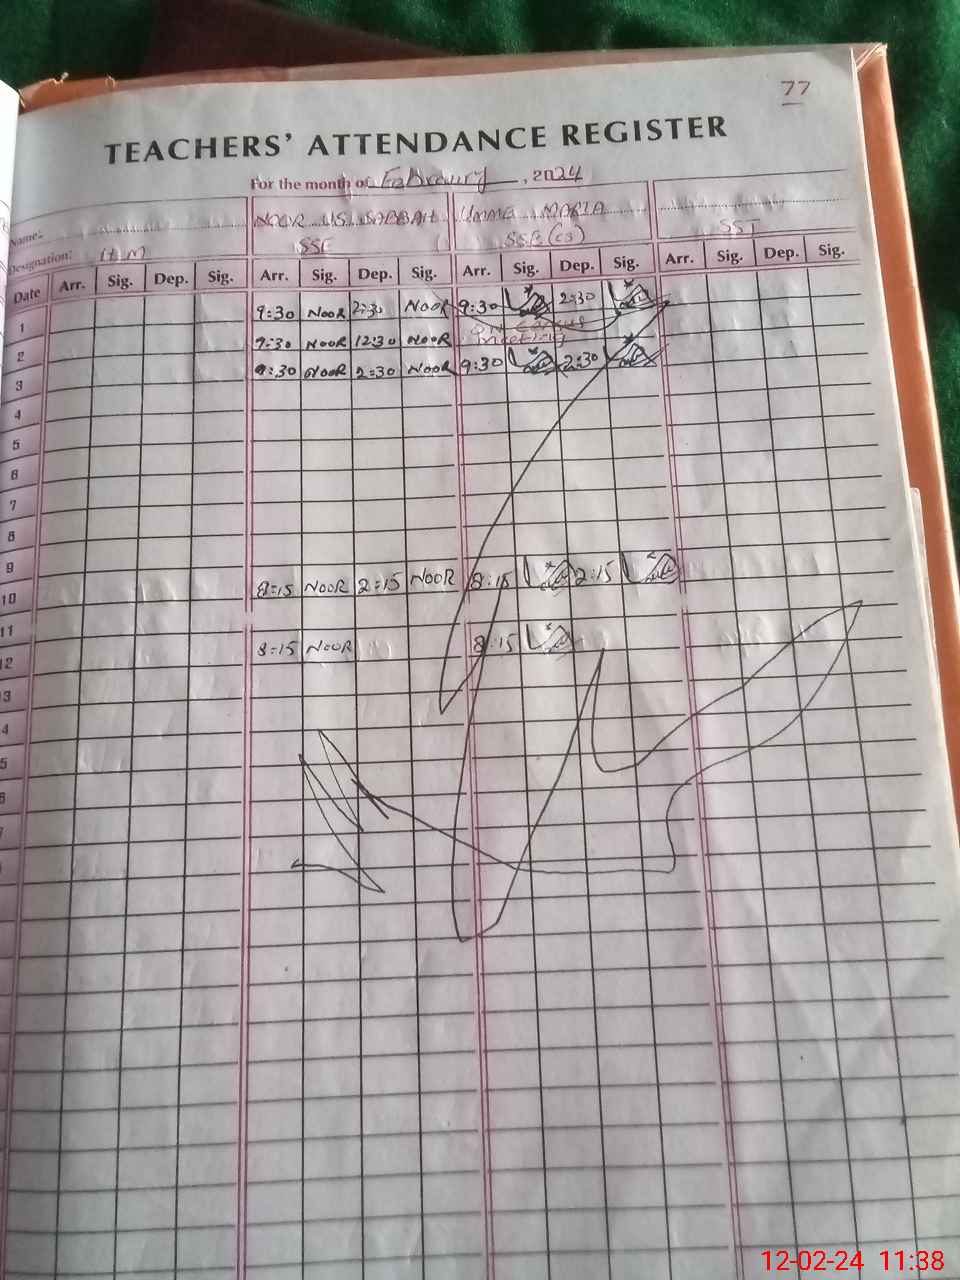 77
TEACHERS' ATTENDANCE REGISTER
For the month of February, 2024
Name: NOOR US SABBAH UMME MARIA
Designation: H M SSE SSE (CS) SST
Date Arr. Sig. Dep. Sig. Arr. Sig. Dep. Sig. Arr. Sig. Dep. Sig. Arr. Sig. Dep. Sig.
1 9:30 NOOR 2:30 NOOR 9:30 2:30
2 9:30 NOOR 12:30 NOOR meeting
3 9:30 NOOR 2:30 NOOR 9:30 2:30
4
5
6
7
8
9
10 8:15 NOOR 2:15 NOOR 8:15 2:15
11
12 8:15 NOOR 8:15
3
4
5
12-02-24 11:38